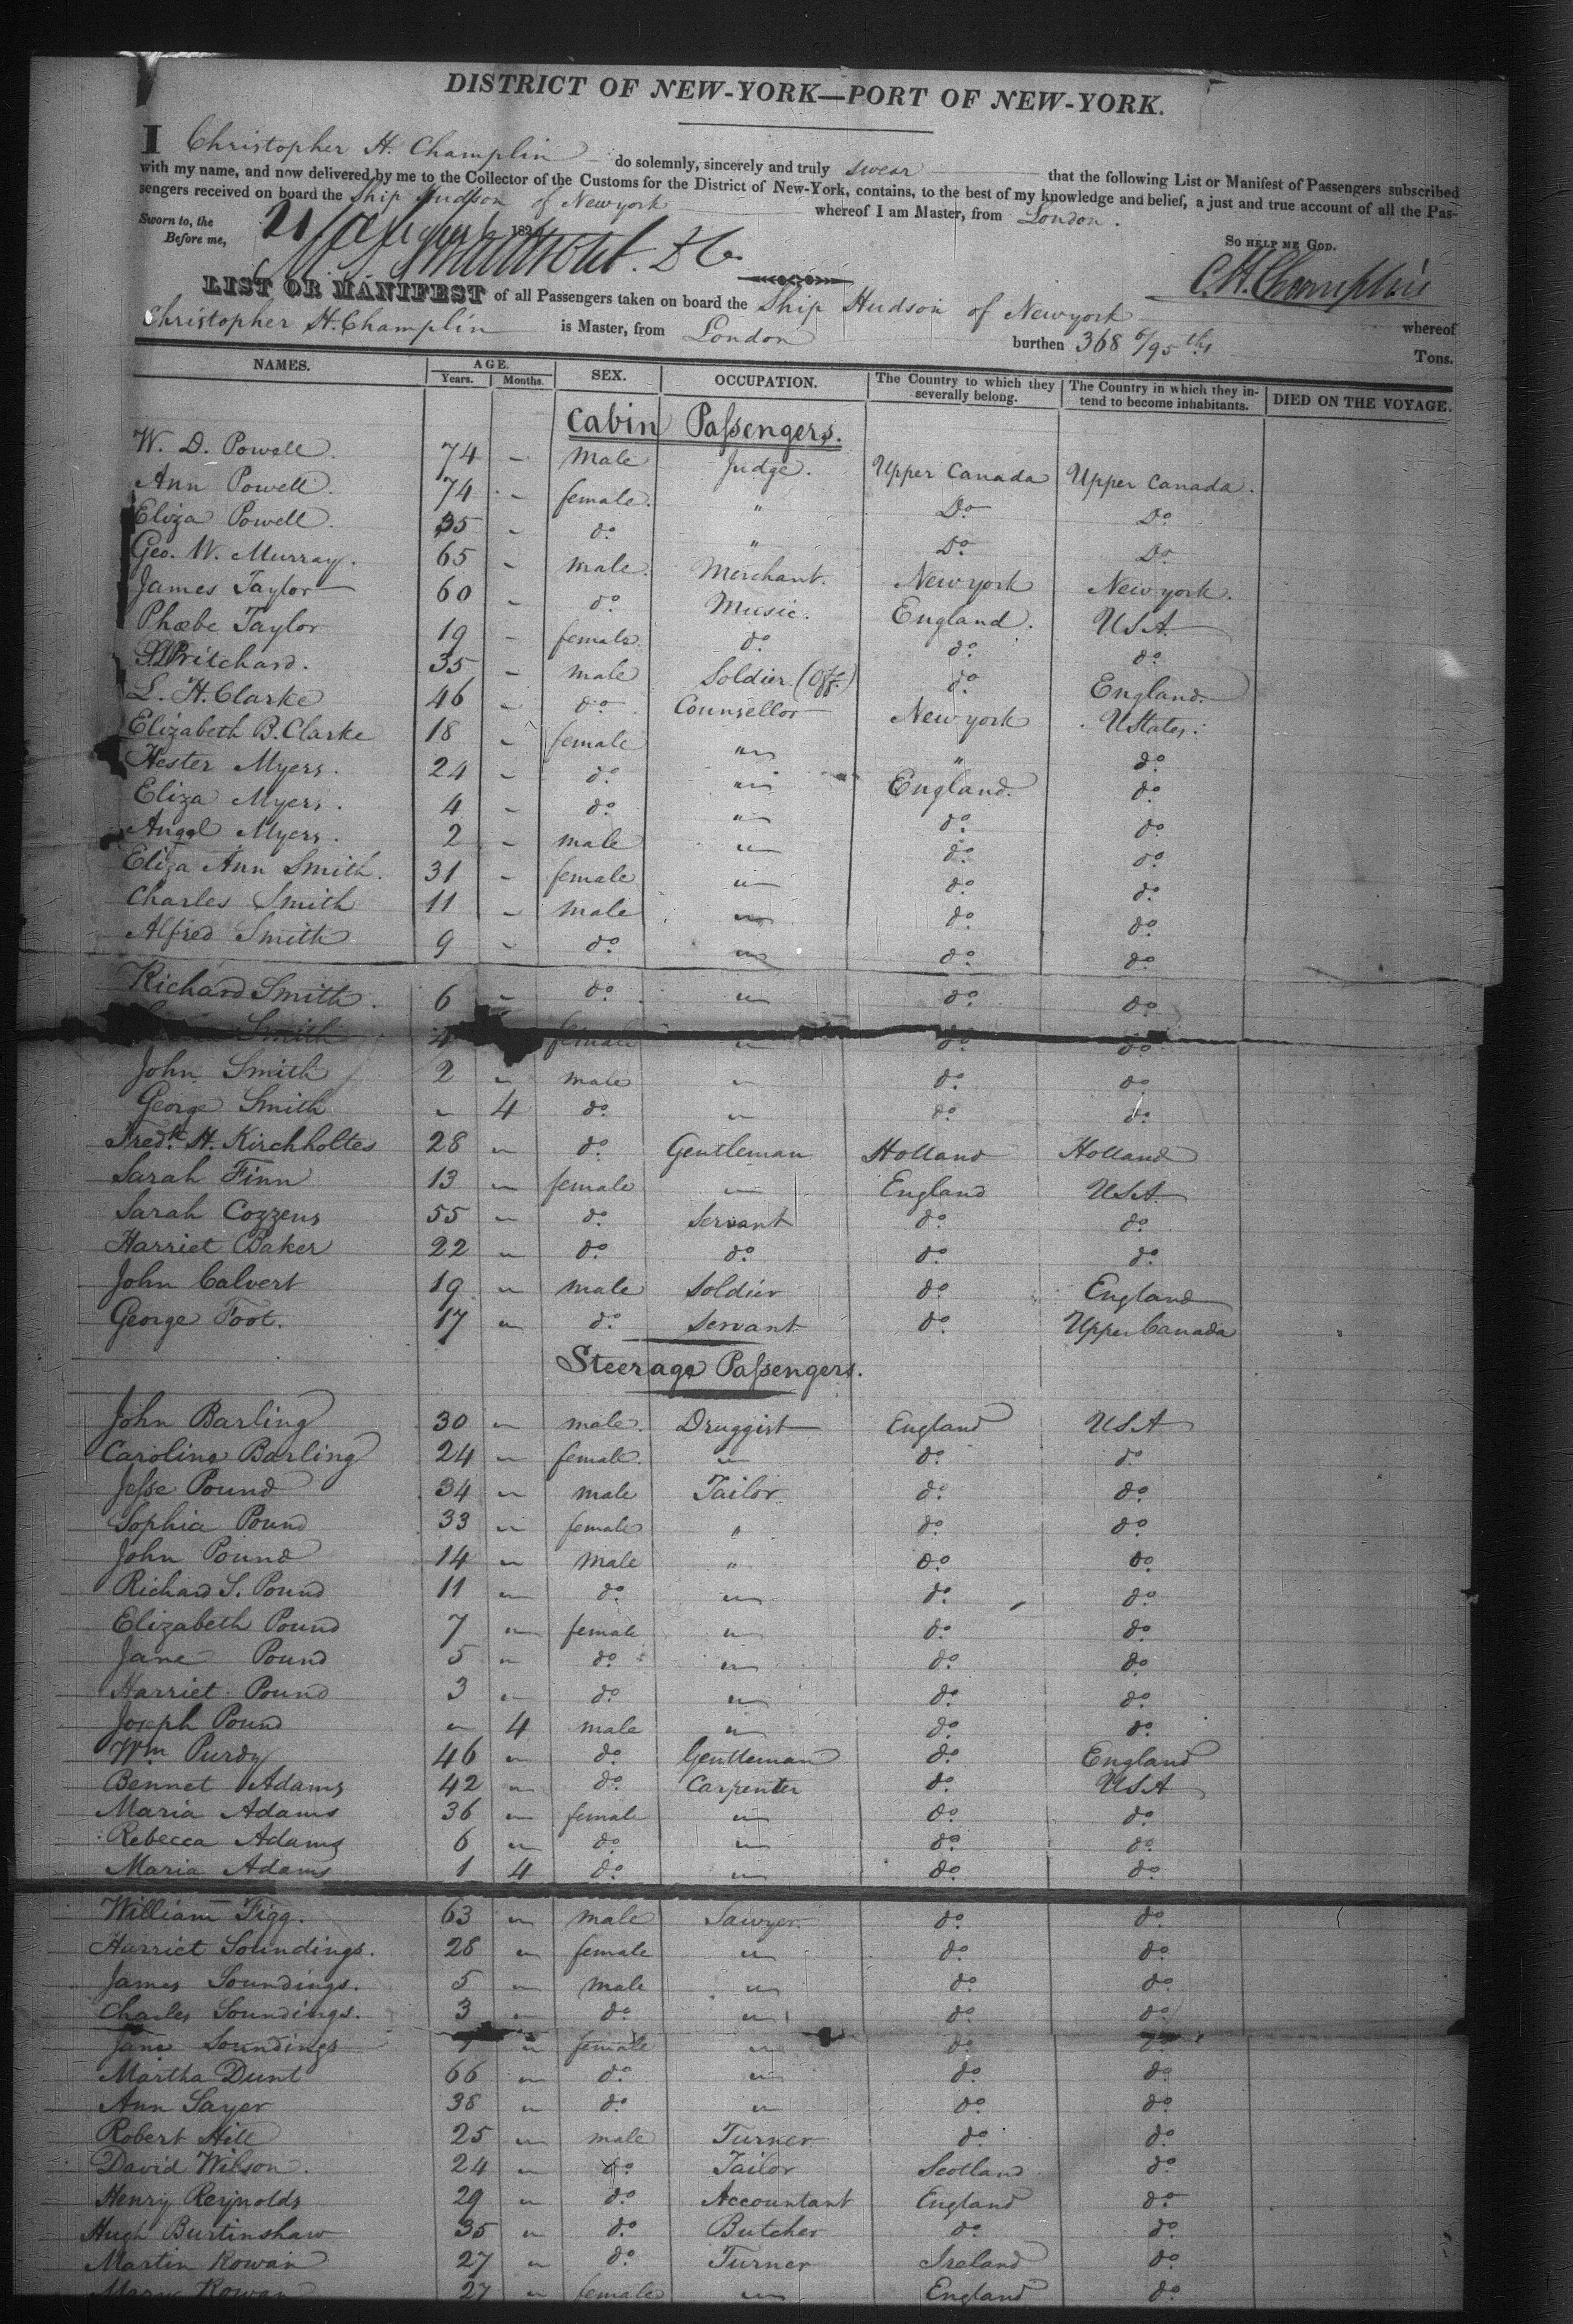 DISTRICT OF NEW-YORK—PORT OF NEW-YORK.
I Christopher H. Champlin do solemnly, sincerely and truly swear that the following List or Manifest of Passengers subscribed
with my name, and now delivered by me to the Collector of the Customs for the District of New-York, contains, to the best of my knowledge and belief, a just and true account of all the Pas-
sengers received on board the Ship Hudson of Newyork whereof I am Master, from London.
Sworn to, the 21 August 182
Before me,
So HELP ME GOD.
C.H. Champlin
LIST OR MANIFEST of all Passengers taken on board the Ship Hudson of Newyork whereof
Christopher H. Champlin is Master, from London burthen 368 6/95ths Tons.
NAMES. AGE. Years. Months. SEX. OCCUPATION. The Country to which they severally belong. The Country in which they in-tend to become inhabitants. DIED ON THE VOYAGE.
Cabin Passengers.
W. D. Powell. 74 - Male Judge. Upper Canada Upper Canada.
Ann Powell. 74 - female. " Do Do
Eliza Powell. 35 - do " Do Do
Geo. W. Murray. 65 - male. Merchant. Newyork Newyork.
James Taylor 60 - do Music. England. USA
Phœbe Taylor 19 - female do do do
Pritchard. 35 - male Soldier (Off.) do England.
L. H. Clarke 46 - do Counsellor Newyork UStates.
Elizabeth B. Clarke 18 - female " " do
Hester Myers. 24 - do " England. do
Eliza Myers. 4 - do " do do
Angel Myers. 2 - male " do do
Eliza Ann Smith. 31 - female " do do
Charles Smith 11 - male " do do
Alfred Smith 9 - do " do do
Richard Smith. 6 - do " do do
Smith 4 female " do do
John Smith 2 " male " do do
George Smith " 4 do " do do
Fredk. H. Kirchholtes 28 " do Gentleman Holland Holland
Sarah Finn 13 " female " England USA
Sarah Cozzens 55 " do Servant do do
Harriet Baker 22 " do do do do
John Calvert 19 " male Soldier do England
George Foot. 17 " do Servant do Upper Canada
Steerage Passengers.
John Barling 30 " male. Druggist England USA
Caroline Barling 24 " female. " do do
Jesse Pound 34 " male Tailor do do
Sophia Pound 33 " female " do do
John Pound 14 " Male " do do
Richard S. Pound 11 " do " do do
Elizabeth Pound 7 " female " do do
Jane Pound 5 " do " do do
Harriet Pound 3 " do " do do
Joseph Pound " 4 male " do do
Wm Purdy 46 " do Gentleman do England
Bennet Adams 42 " do Carpenter do USA
Maria Adams 36 " female " do do
Rebecca Adams 6 " do " do do
Maria Adams 1 4 do " do do
William Figg. 63 " male Sawyer do do
Harriet Soundings. 28 " female " do do
James Soundings. 5 " male " do do
Charles Soundings. 3 " do " do do
Jane Soundings " female " do
Martha Dunt 66 " do " do do
Ann Sayer 38 " do " do do
Robert Hill 25 " male Turner do do
David Wilson. 24 " do Tailor Scotland do
Henry Reynolds 29 " do Accountant England do
Hugh Burtinshaw 35 " do Butcher do do
Martin Rowan 27 " do Turner Ireland do
Mary Rowan 27 " female " England do